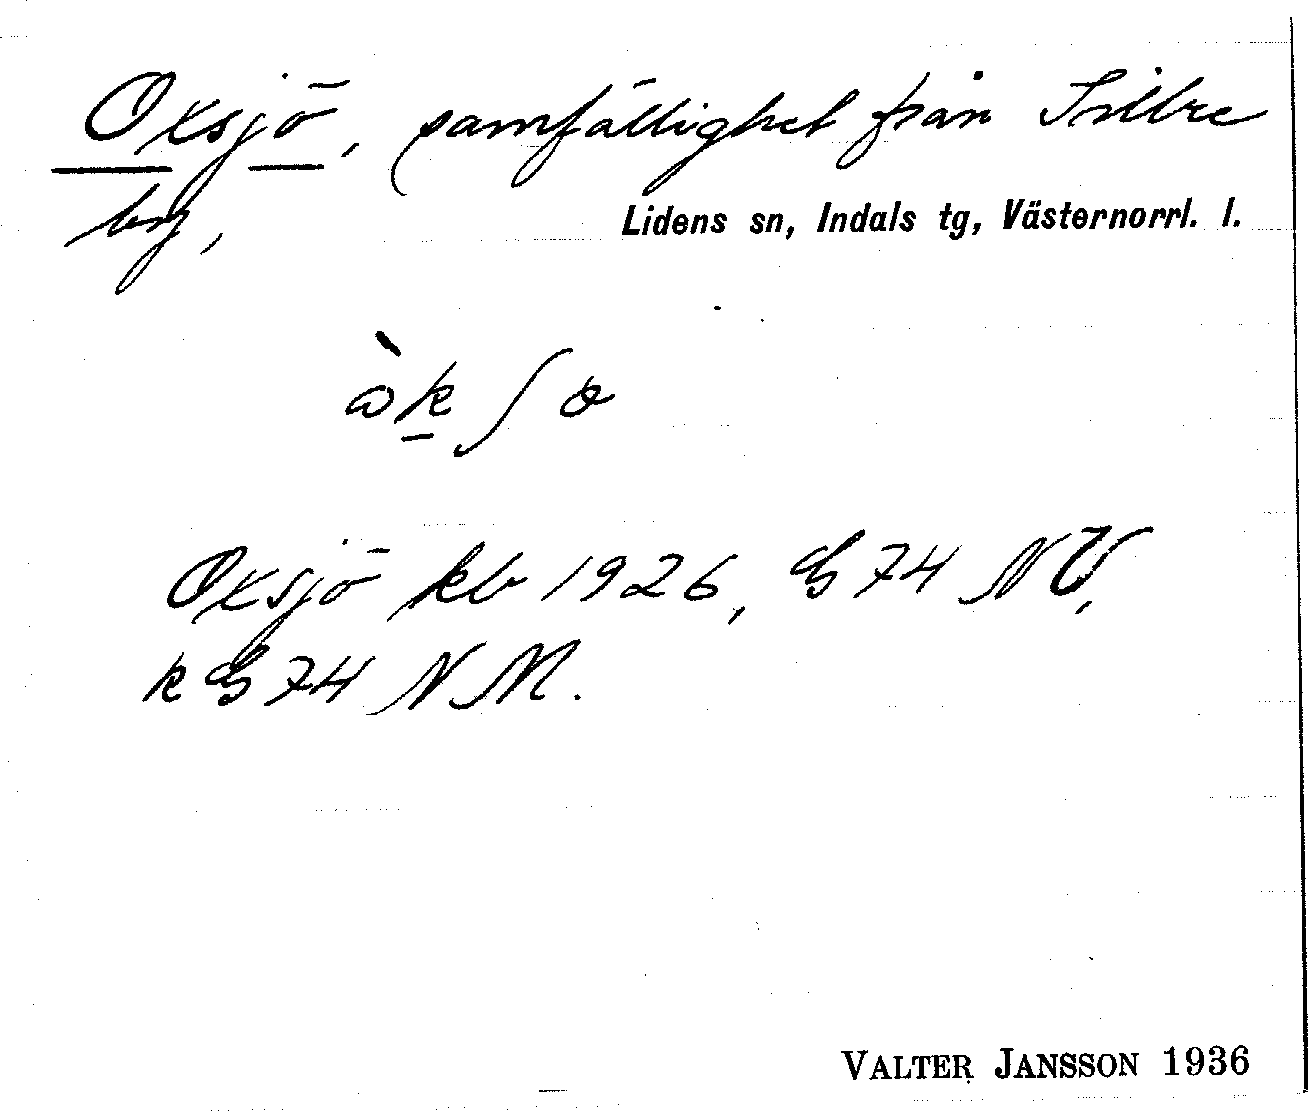 Oxsjö, samfällighet från Sillre
by,
Lidens sn, Indals tg, Västernorrl. l.
Oxsjö kb 1926, G 74 NV,
k G 74 NM.
VALTER JANSSON 1936